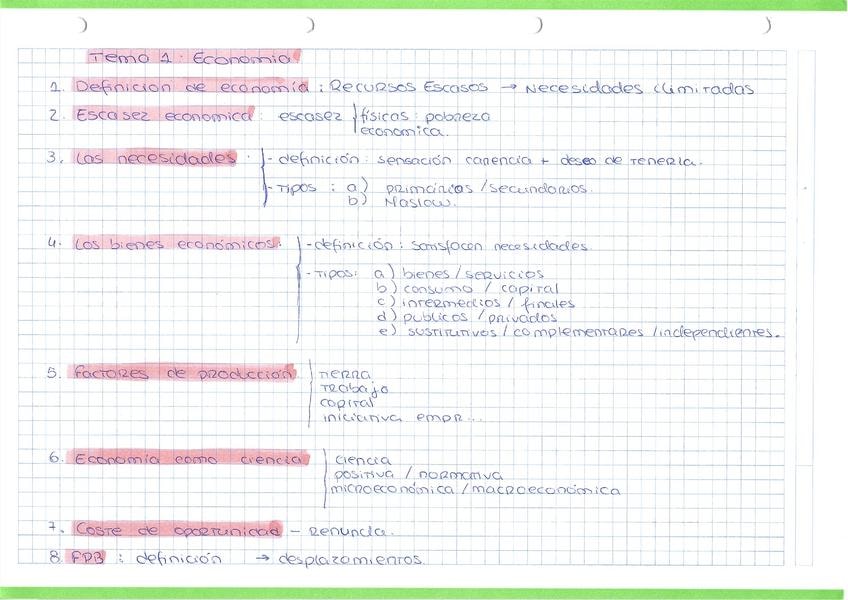 Tema 1: Economía
1. Definicion de economía : Recursos Escasos → Necesidades ilimitadas
2. Escasez economica : escasez físicas : pobreza
economica.
3. Las necesidades : - definición : sensación carencia + deseo de tenerla.
- Tipos : a) primarias / secundarias.
b) Maslow.
4. Los bienes económicos: - definición : satisfacen necesidades
- Tipos: a) bienes / servicios
b) consumo / capital
c) intermedios / finales
d) publicos / privados
e) sustitutivos / complementares / independientes.
5. Factores de producción tierra
Trabajo
capital
iniciativa empr...
6. Economía como ciencia ciencia
positiva / normativa
microeconómica / macroeconomica
7. Coste de oportunidad – Renuncia.
8. FPB : definición → desplazamientos.